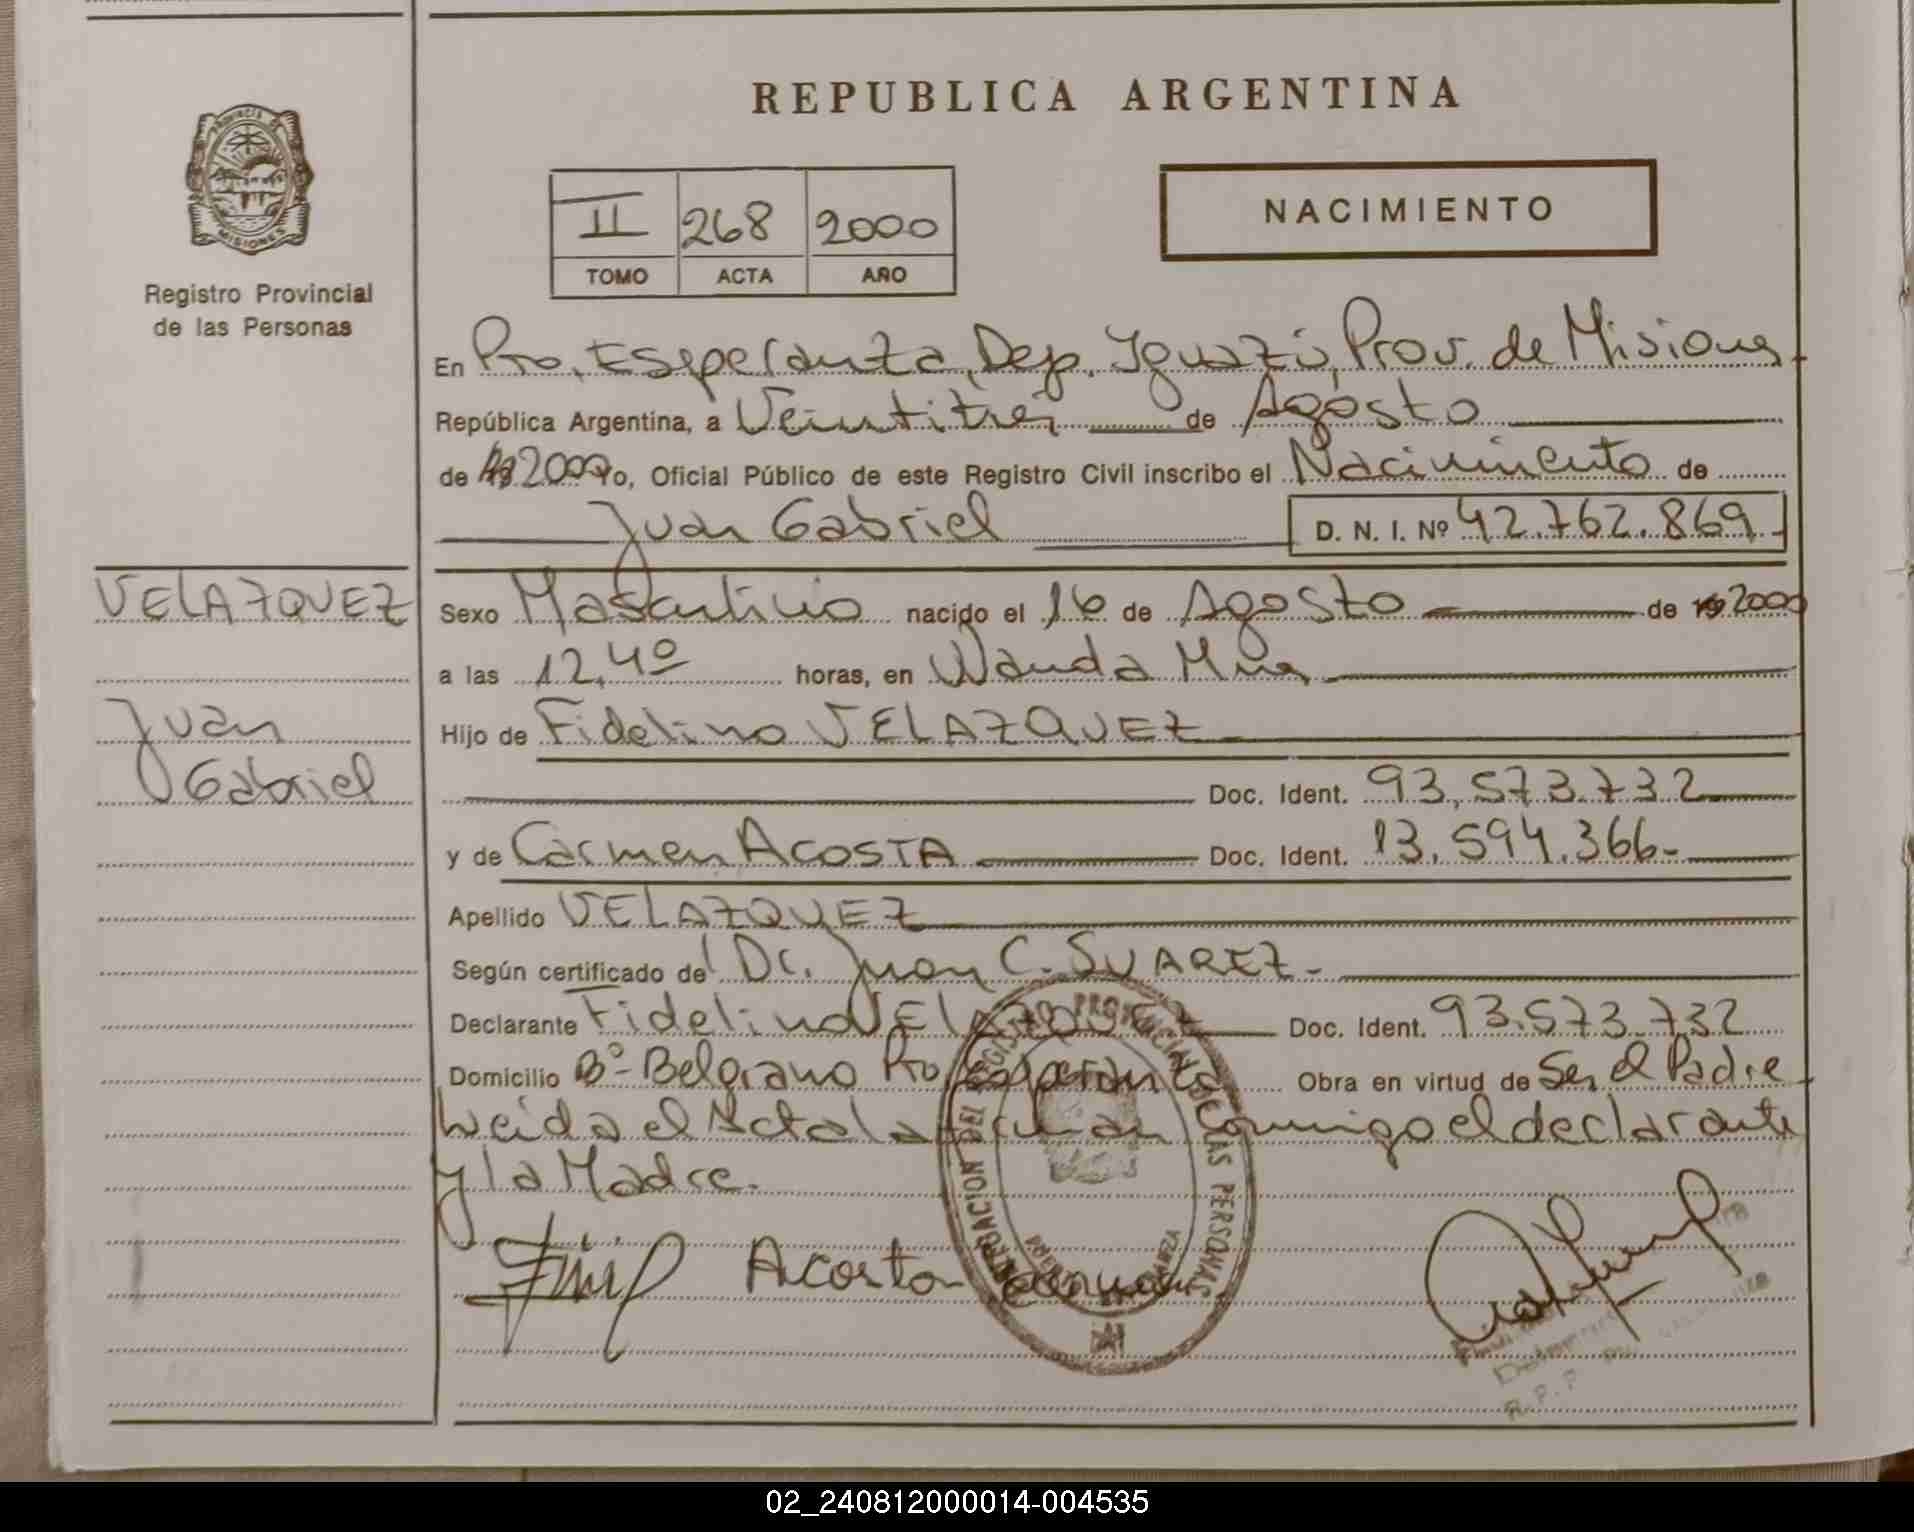 REPUBLICA ARGENTINA
PROVINCIA DE
MISIONES
Registro Provincial
de las Personas
II 268 2000
TOMO ACTA AÑO
NACIMIENTO
En Pto. Esperanza, Dep. Iguazú, Prov. de Misiones
República Argentina, a Veintitres de Agosto
de 2000 Yo, Oficial Público de este Registro Civil inscribo el Nacimiento de
Juan Gabriel D. N. I. Nº 42.762.869.-
VELAZQUEZ
Juan
Gabriel
Sexo Masculino nacido el 16 de Agosto de 2000
a las 12,40 horas, en Wanda Mnes
Hijo de Fidelino VELAZQUEZ
Doc. Ident. 93.573.732
y de Carmen ACOSTA Doc. Ident. 13.594.366-
Apellido VELAZQUEZ
Según certificado del Dr. Juan C. SUAREZ-
Declarante Fidelino VELAZQUEZ Doc. Ident. 93.573.732
Domicilio Bº Belgrano Pto Esperanza Obra en virtud de Ser el Padre
Leida el Acta la firman conmigo el declarante
y la Madre.
Acosta Carmen
DELEGACION DEL REGISTRO PROVINCIAL DE LAS PERSONAS
R.P.P.
02_240812000014-004535